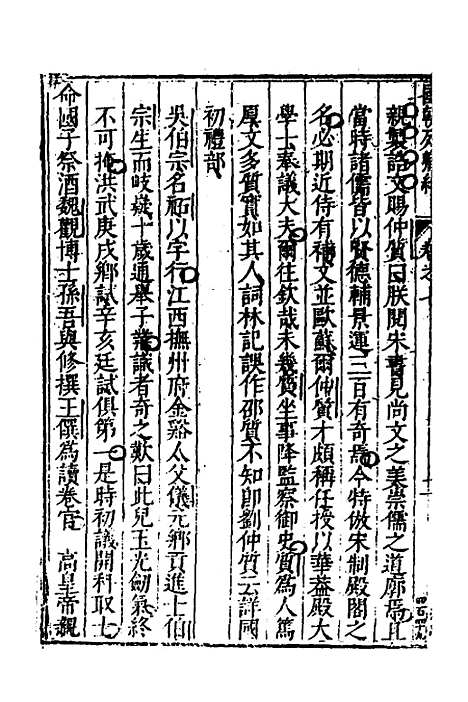 親製誥文賜仲質曰朕聞宋書見尚文之美崇儒之道廓焉且
當時諸儒皆以賢德輔景運三百有奇焉今特倣宋制殿閣之
名必期近侍有補文並歐蘇爾仲質才頗稱任授以華蓋殿大
學士奉議大夫爾往欽哉未幾質坐事降監察御史質為人篤
厚文多質實如其人詞林記誤作邵質不知即劉仲質云詳國
初禮部
吳伯宗名祏以字行江西撫州府金谿人父儀元鄉貢進士伯
宗生而岐嶷十歲通舉子業識者奇之歎曰此兒玉光劍氣終
不可掩洪武庚戌鄉試辛亥廷試俱第一是時初議開科取士
命國子祭酒魏觀博士孫吾與修撰王僎為讀卷官 高皇帝親
卷之十
四百四十九